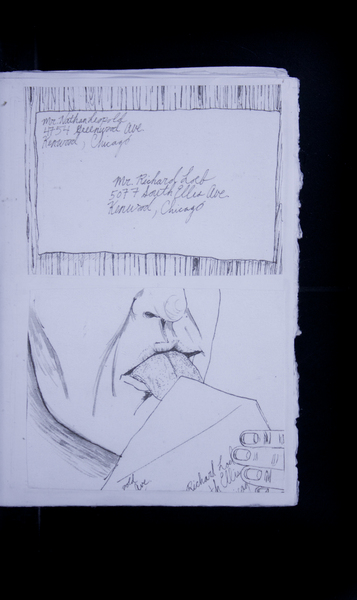 Mr. Nathan Leopold
4754 Greenwood Ave
Kenwood, Chicago
Mr. Richard Loeb
5077 South Ellis Ave
Kenwood, Chicago
Ave
Richard Loeb
Ellis